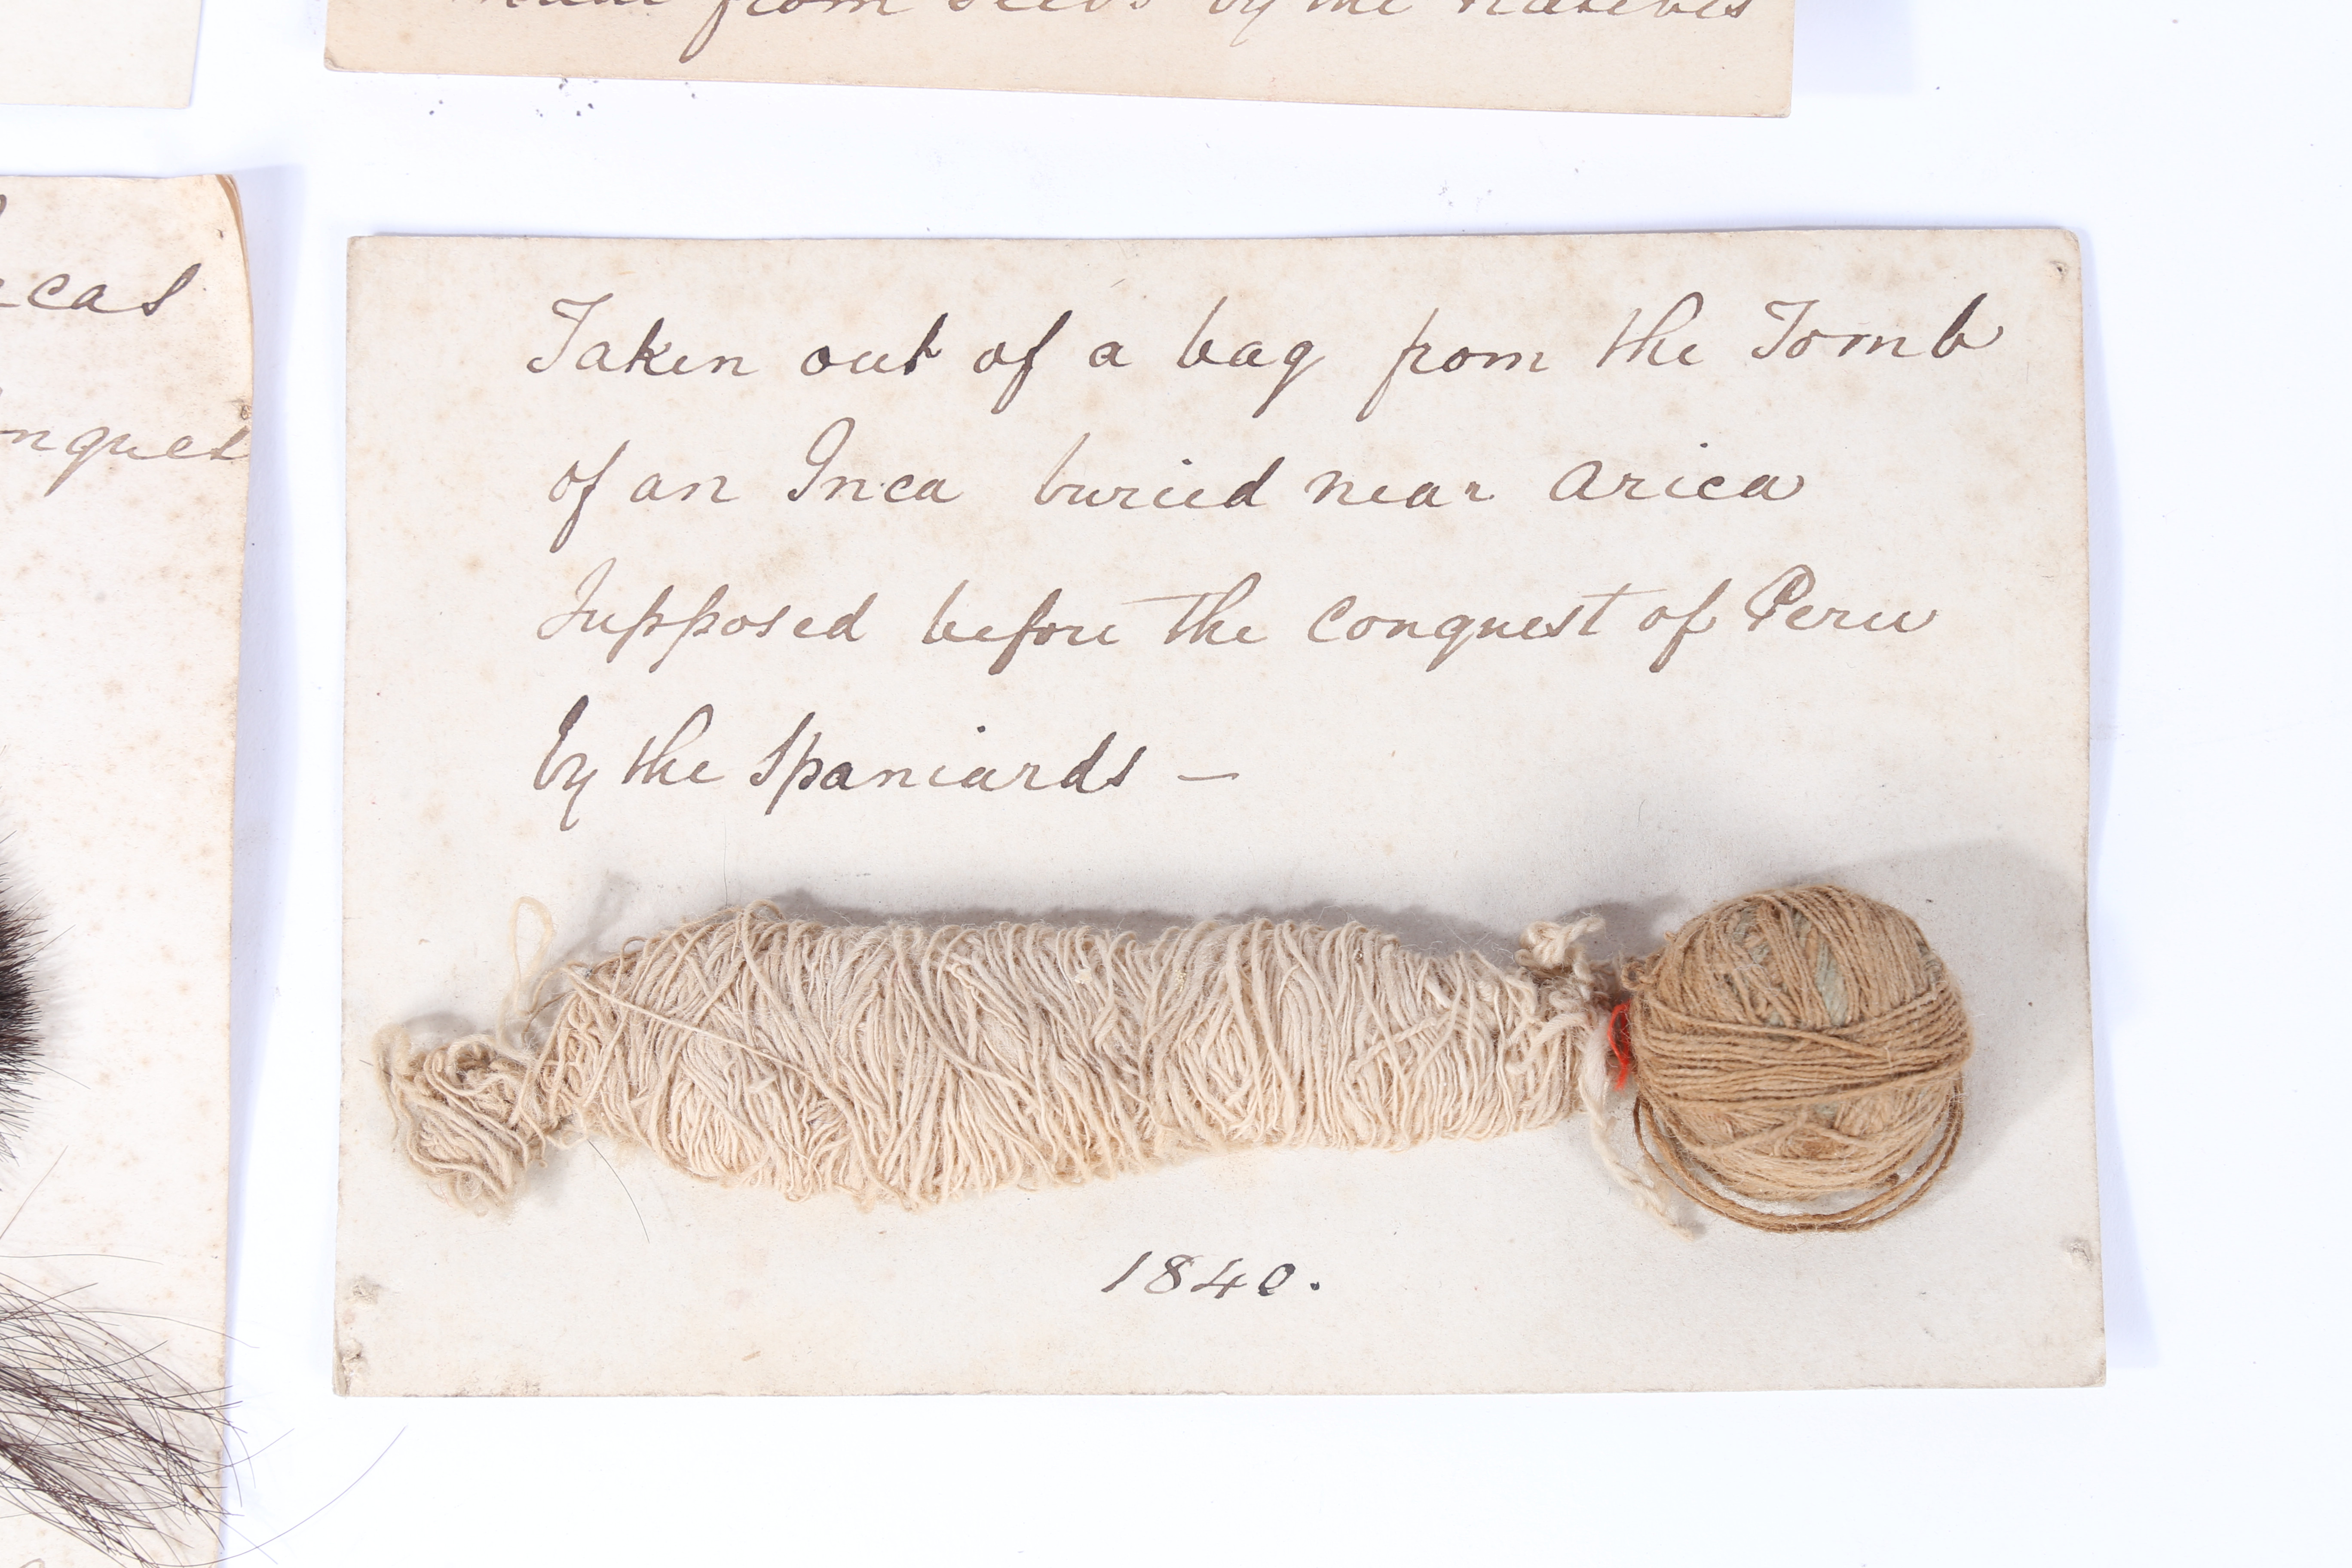 from seeds by the natives
Taken out of a bag from the Tomb
of an Inca buried near Arica
Supposed before the Conquest of Peru
by the Spaniards —
1840.